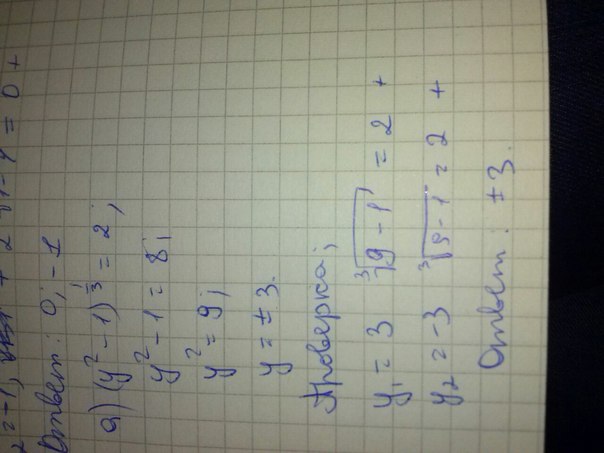 = -1,
+ 2
- 1 = 0 +
Ответ: 0; -1
а) (y² - 1)^(1/3) = 2;
y² - 1 = 8;
y² = 9;
y = ± 3.
Проверка;
y₁ = 3 ∛(9 - 1) = 2 +
y₂ = -3 ∛(9 - 1) = 2 +
Ответ: ± 3.